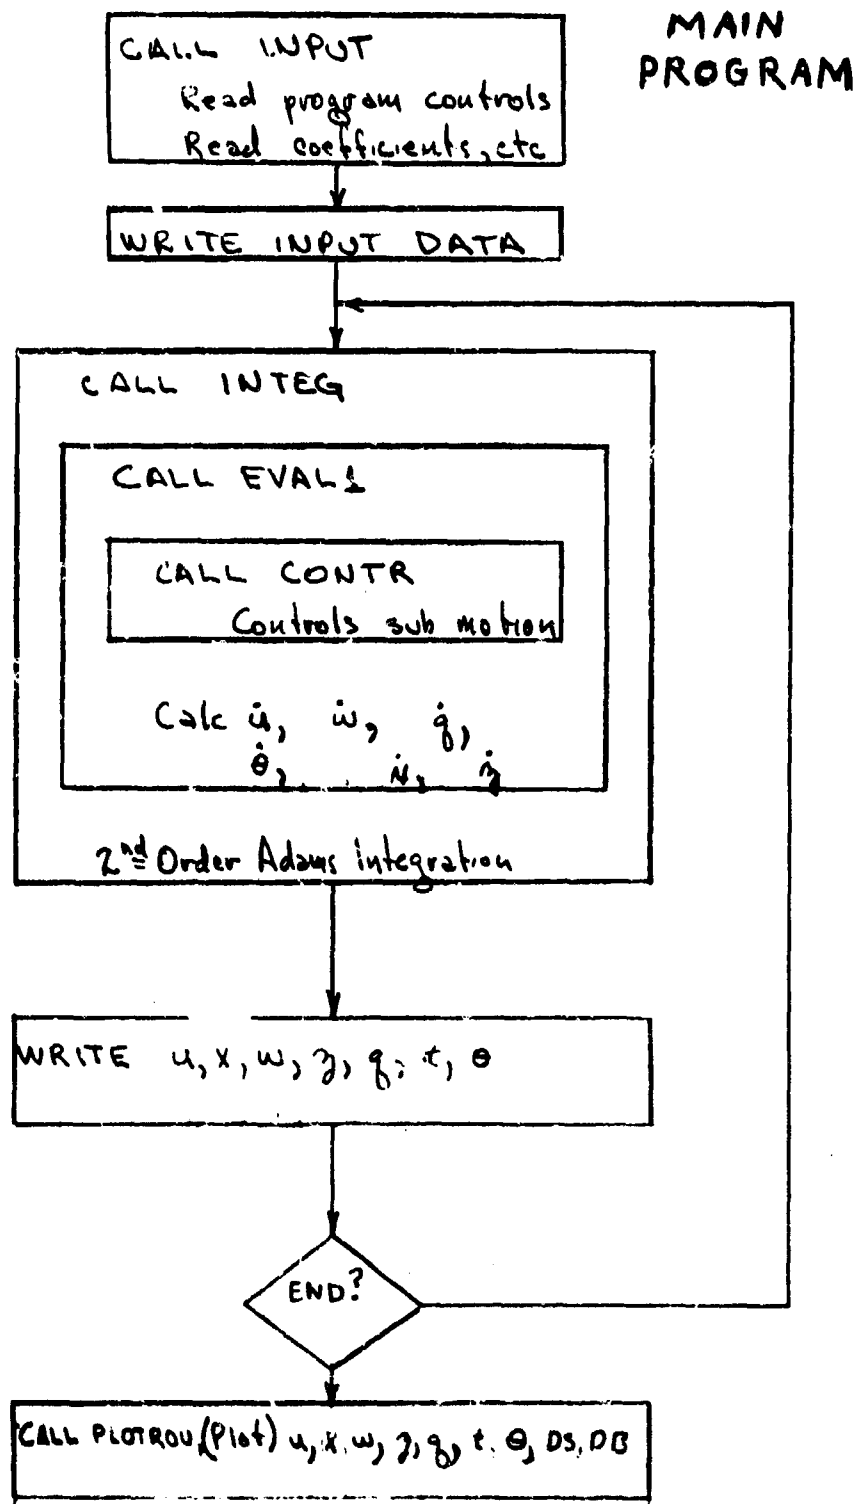 MAIN
PROGRAM
CALL INPUT
Read program controls
Read coefficients, etc
WRITE INPUT DATA
CALL INTEG
CALL EVAL1
CALL CONTR
Controls sub motion
Calc u̇, ẇ, q̇,
θ̇, ẋ, ż
2nd Order Adams Integration
WRITE u, x, w, z, q, t, θ
END?
CALL PLOTROU (Plot) u, x, w, z, q, t, θ, DS, DB